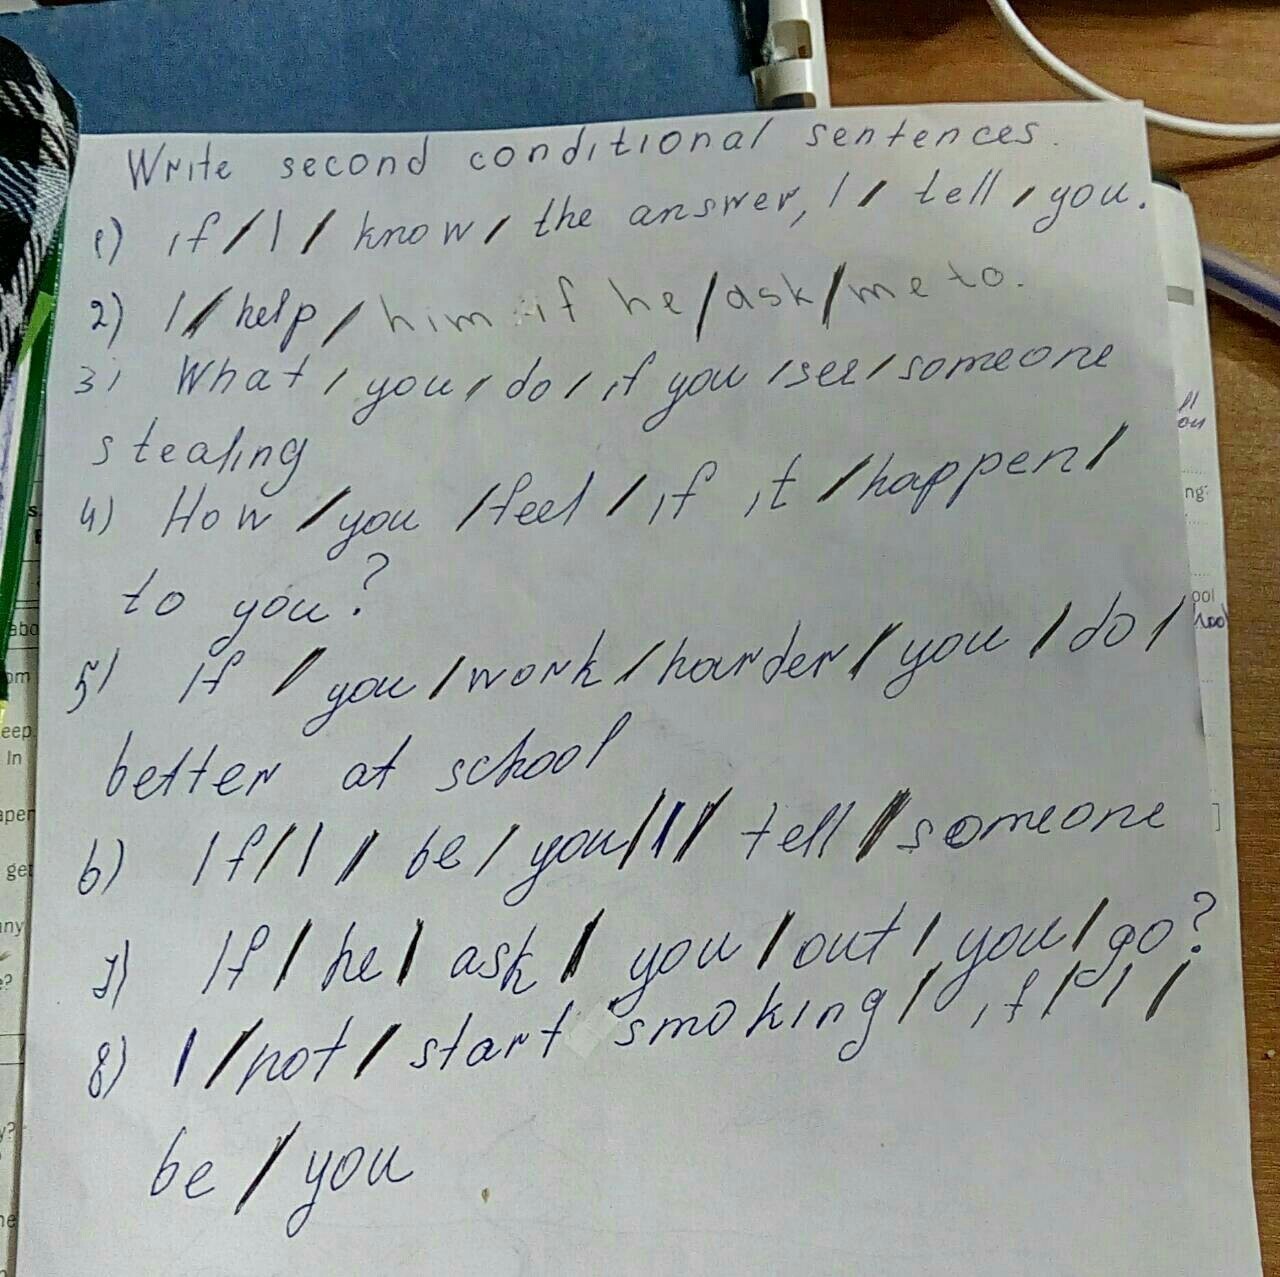 Write second conditional sentences.
1) if / I / know / the answer, I / tell / you.
2) I / help / him if he / ask / me to.
3) What / you / do / if you / see / someone
stealing
4) How / you / feel / if it / happen /
to you?
5) If / you / work / harder / you / do /
better at school
6) If / I / be / you / I / tell / someone
7) If / he / ask / you / out / you / go?
8) I / not / start smoking / if / I /
be / you
ng
ool
eep
In
get